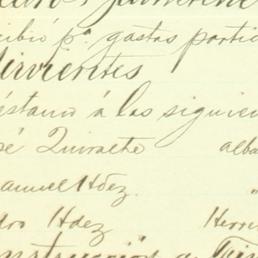 cibió pª. gastos partic
Sirvientes
éstamo á las siguien
sé Quirache alba
anuel Hdez. "
dro Hdez Herre
nstrucción